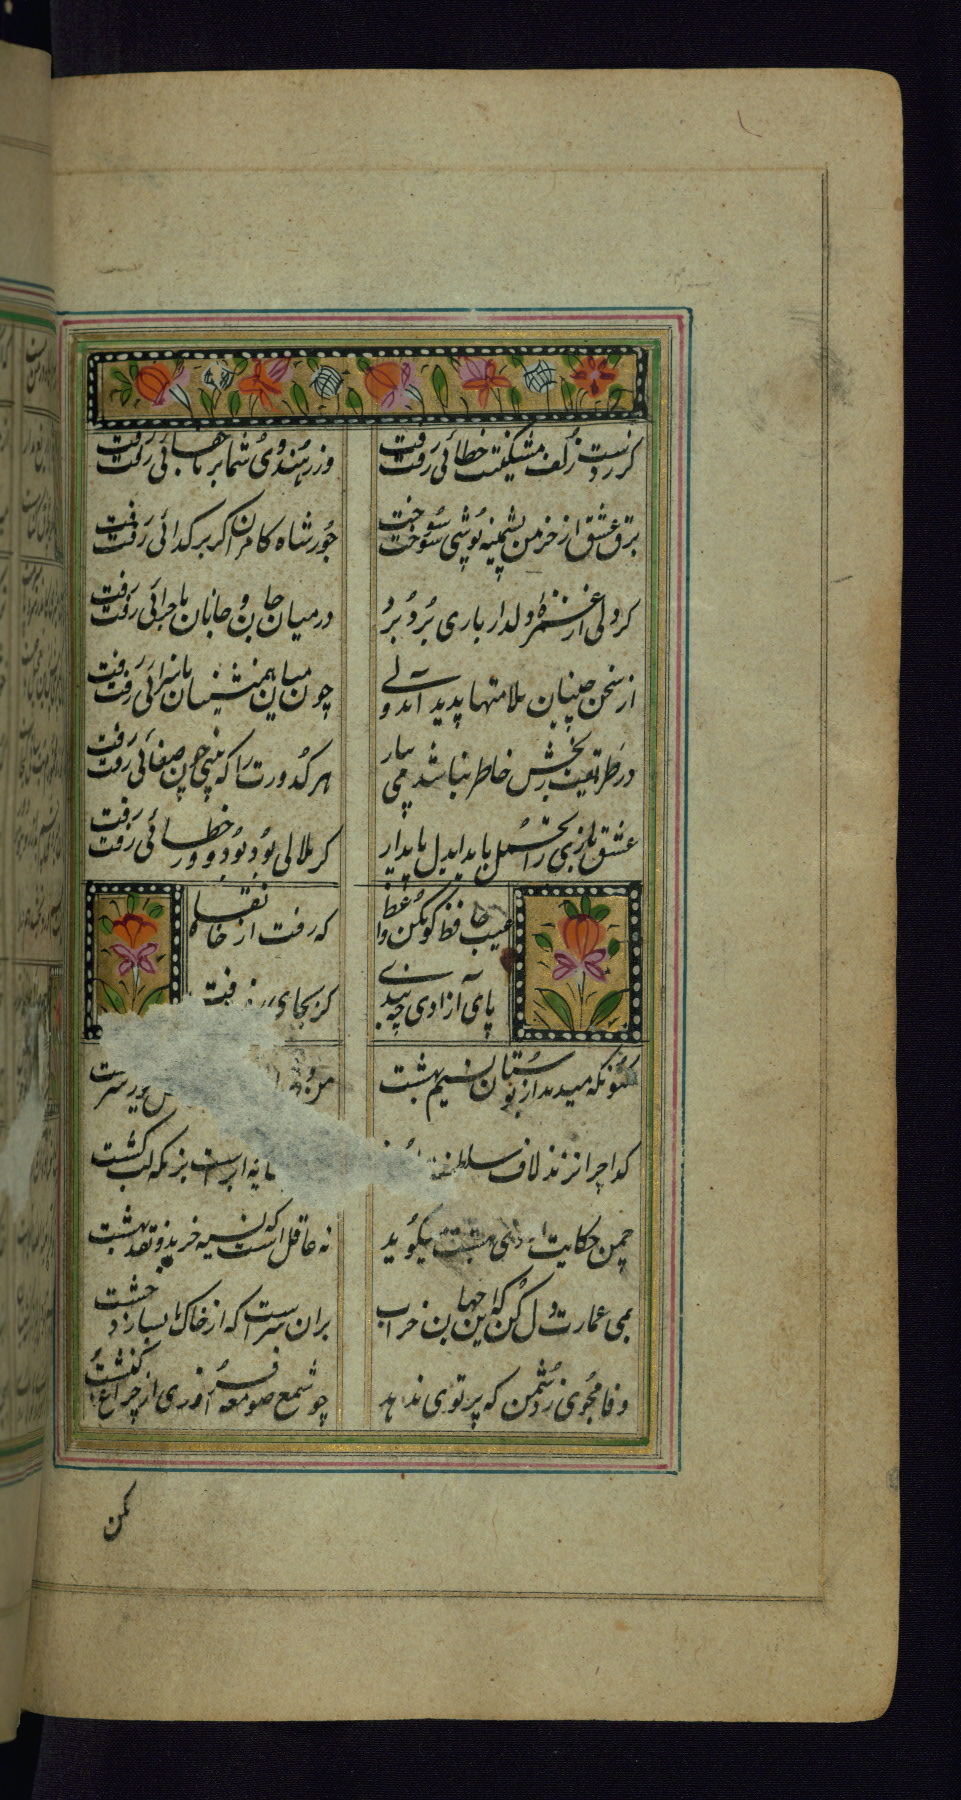 کر ز دست زلف مشکینت خطائی رفت رفت
ور ز هندوی شما بر ما جفائی رفت رفت
برق عشق ار خرمن پشمینه پوشی سوخت سوخت
جور شاه کامران کر بر کدائی رفت رفت
کر دلی از غمزهٔ دلدار باری برد برد
در میان جان و جانان ماجرائی رفت رفت
از سخن چینان ملامتها پدید آمد ولی
چون میان همنشینان ناسزائی رفت رفت
در طریقت رنجش خاطر نباشد می بیار
هر کدورت را که بینی چون صفائی رفت رفت
عشق بازی را تحمل باید ایدل پایدار
کر ملالی بود بود و ور خطائی رفت رفت
عیب حافظ کو مکن واعظ
که رفت از خانقاه
پای آزادی چه بندی
کر بجای رفت
کنونکه میدمد از بوستان نسیم بهشت
من و سرشت
کدا چرا نزند لاف سلطنت
سایه ابر است بزمکه لب کشت
چمن حکایت اردی بهشت میکوید
نه عاقل است که نسیه خرید و نقد بهشت
بمی عمارت دل کن که این جهان خراب
بران سر است که از خاک ما بسازد خشت
وفا مجوی ز دشمن که پرتوی ندهد
چو شمع صومعه افروزی از چراغ کنشت
مکن